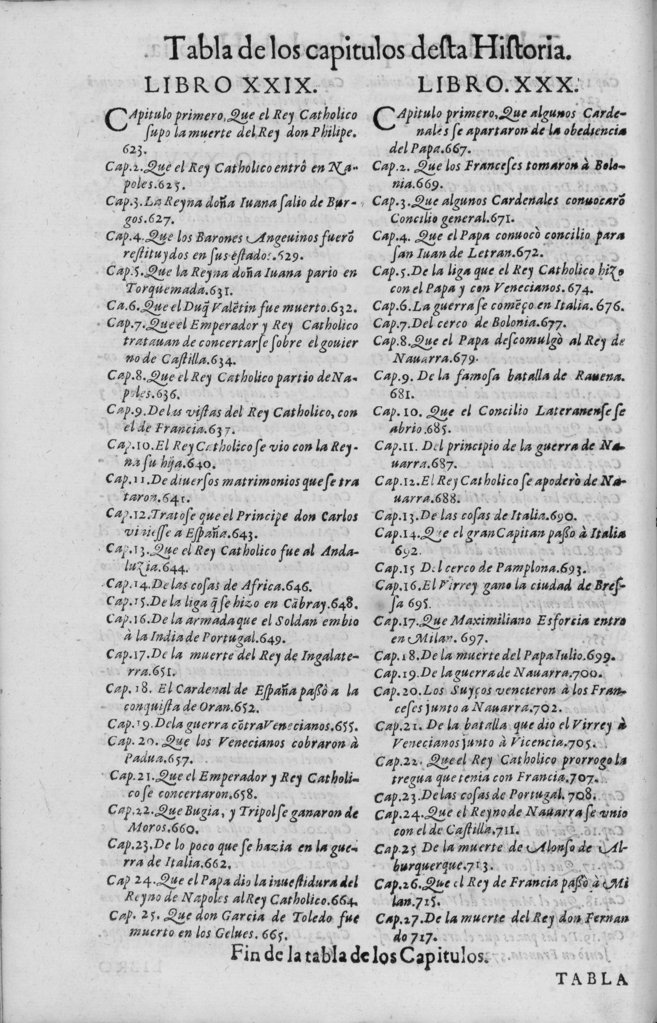 Tabla de los capitulos desta Historia.
LIBRO XXIX.
CApitulo primero, Que el Rey Catholico
supo la muerte del Rey don Philipe.
623.
Cap.2. Que el Rey Catholico entrô en Na-
poles.625.
Cap.3. La Reyna doña Iuana salio de Bur-
gos.627.
Cap.4. Que los Barones Angeuinos fuerõ
restituydos en sus estados.629.
Cap.5. Que la Reyna doña Iuana pario en
Torquemada.631.
Ca.6. Que el Duq̃ Valẽtin fue muerto.632.
Cap.7. Que el Emperador y Rey Catholico
tratauan de concertarse sobre el gouier
no de Castilla.634.
Cap.8. Que el Rey Catholico partio de Na-
poles.636.
Cap.9. De las vistas del Rey Catholico, con
el de Francia.637.
Cap.10. El Rey Catholico se vio con la Rey-
na su hija.640.
Cap.11. De diuersos matrimonios que se tra
taron.641.
Cap.12. Tratose que el Principe don Carlos
viniesse a España.643.
Cap.13. Que el Rey Catholico fue al Anda-
luzia.644.
Cap.14. De las cosas de Africa.646.
Cap.15. De la liga q̃ se hizo en Cãbray.648.
Cap.16. De la armada que el Soldan embio
à la India de Portugal.649.
Cap.17. De la muerte del Rey de Ingalate-
rra.651.
Cap.18. El Cardenal de España passò a la
conquista de Oran.652.
Cap.19. De la guerra cõtra Venecianos.655.
Cap.20. Que los Venecianos cobraron à
Padua.657.
Cap.21. Que el Emperador y Rey Catholi-
co se concertaron.658.
Cap.22. Que Bugia, y Tripol se ganaron de
Moros.660.
Cap.23. De lo poco que se hazia en la gue-
rra de Italia.662.
Cap 24. Que el Papa dio la inuestidura del
Reyno de Napoles al Rey Catholico.664.
Cap. 25. Que don Garcia de Toledo fue
muerto en los Gelues. 665.
LIBRO.XXX.
CApitulo primero, Que algunos Carde-
nales se apartaron de la obediencia
del Papa.667.
Cap.2. Que los Franceses tomaron à Bolo-
nia.669.
Cap.3. Que algunos Cardenales conuocarõ
Concilio general.671.
Cap.4. Que el Papa conuocò concilio para
san Iuan de Letran.672.
Cap.5. De la liga que el Rey Catholico hizo
con el Papa y con Venecianos.674.
Cap.6. La guerra se comẽço en Italia. 676.
Cap.7. Del cerco de Bolonia.677.
Cap.8. Que el Papa descomulgò al Rey de
Nauarra.679.
Cap.9. De la famosa batalla de Rauena.
681.
Cap.10. Que el Concilio Lateranense se
abrio.685.
Cap.11. Del principio de la guerra de Na-
uarra.687.
Cap.12. El Rey Catholico se apoderò de Na-
uarra.688.
Cap.13. De las cosas de Italia.690.
Cap.14. Que el gran Capitan passò à Italia
692.
Cap.15 Del cerco de Pamplona.693.
Cap.16. El Virrey gano la ciudad de Bres-
sa 695.
Cap.17. Que Maximiliano Esforcia entro
en Milan. 697.
Cap.18. De la muerte del Papa Iulio.699.
Cap.19. De la guerra de Nauarra.700.
Cap.20. Los Suyços vencieron à los Fran-
ceses junto a Nauarra.702.
Cap.21. De la batalla que dio el Virrey à
Venecianos junto à Vicencia.705.
Cap.22. Que el Rey Catholico prorrogo la
tregua que tenia con Francia.707.
Cap.23. De las cosas de Portugal. 708.
Cap.24. Que el Reyno de Nauarra se vnio
con el de Castilla.711.
Cap.25 De la muerte de Alonso de Al-
burquerque.713.
Cap.26. Que el Rey de Francia passò à Mi
lan.715.
Cap.27. De la muerte del Rey don Fernan
do 717.
Fin de la tabla de los Capitulos.
TABLA